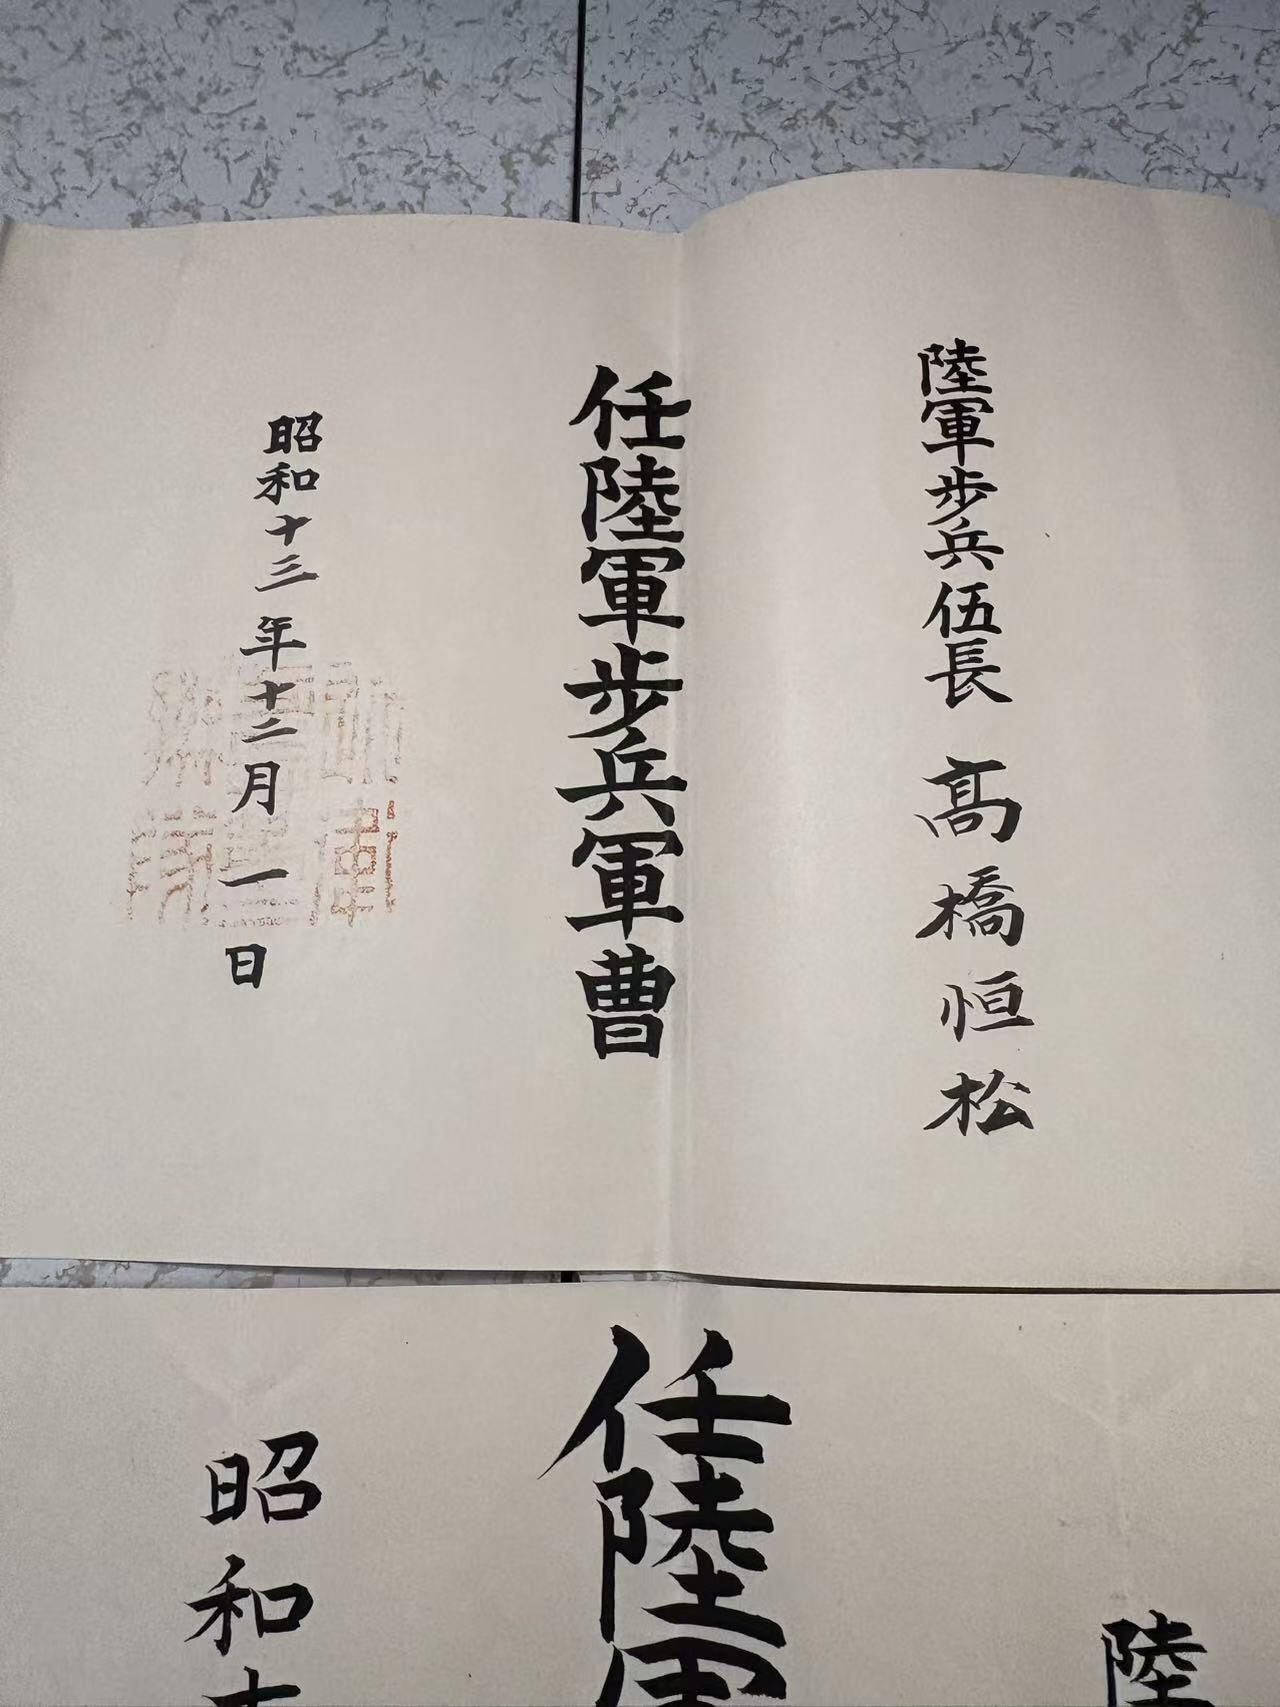 陸軍步兵伍長 髙橋恒松
任陸軍步兵軍曹
昭和十三年十二月一日
陸
任陸軍
昭和十